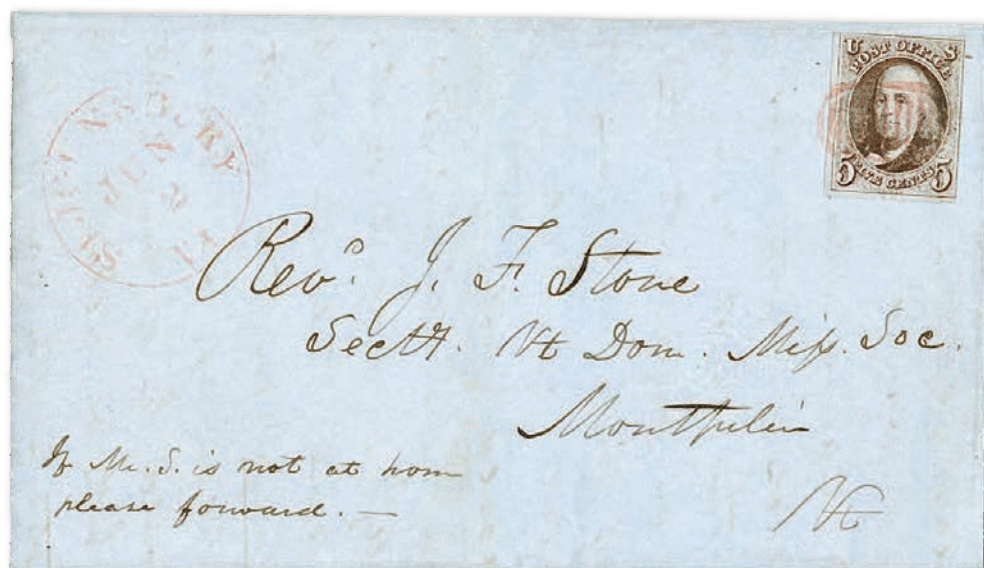 U S
POST OFFICE
5 FIVE CENTS 5
ST. JOHNSBURY VT
Revd. J. F. Stone
Secty. Vt Dom. Miss. Soc.
Montpelier
Vt
If Mr. S. is not at hom
please forward. —